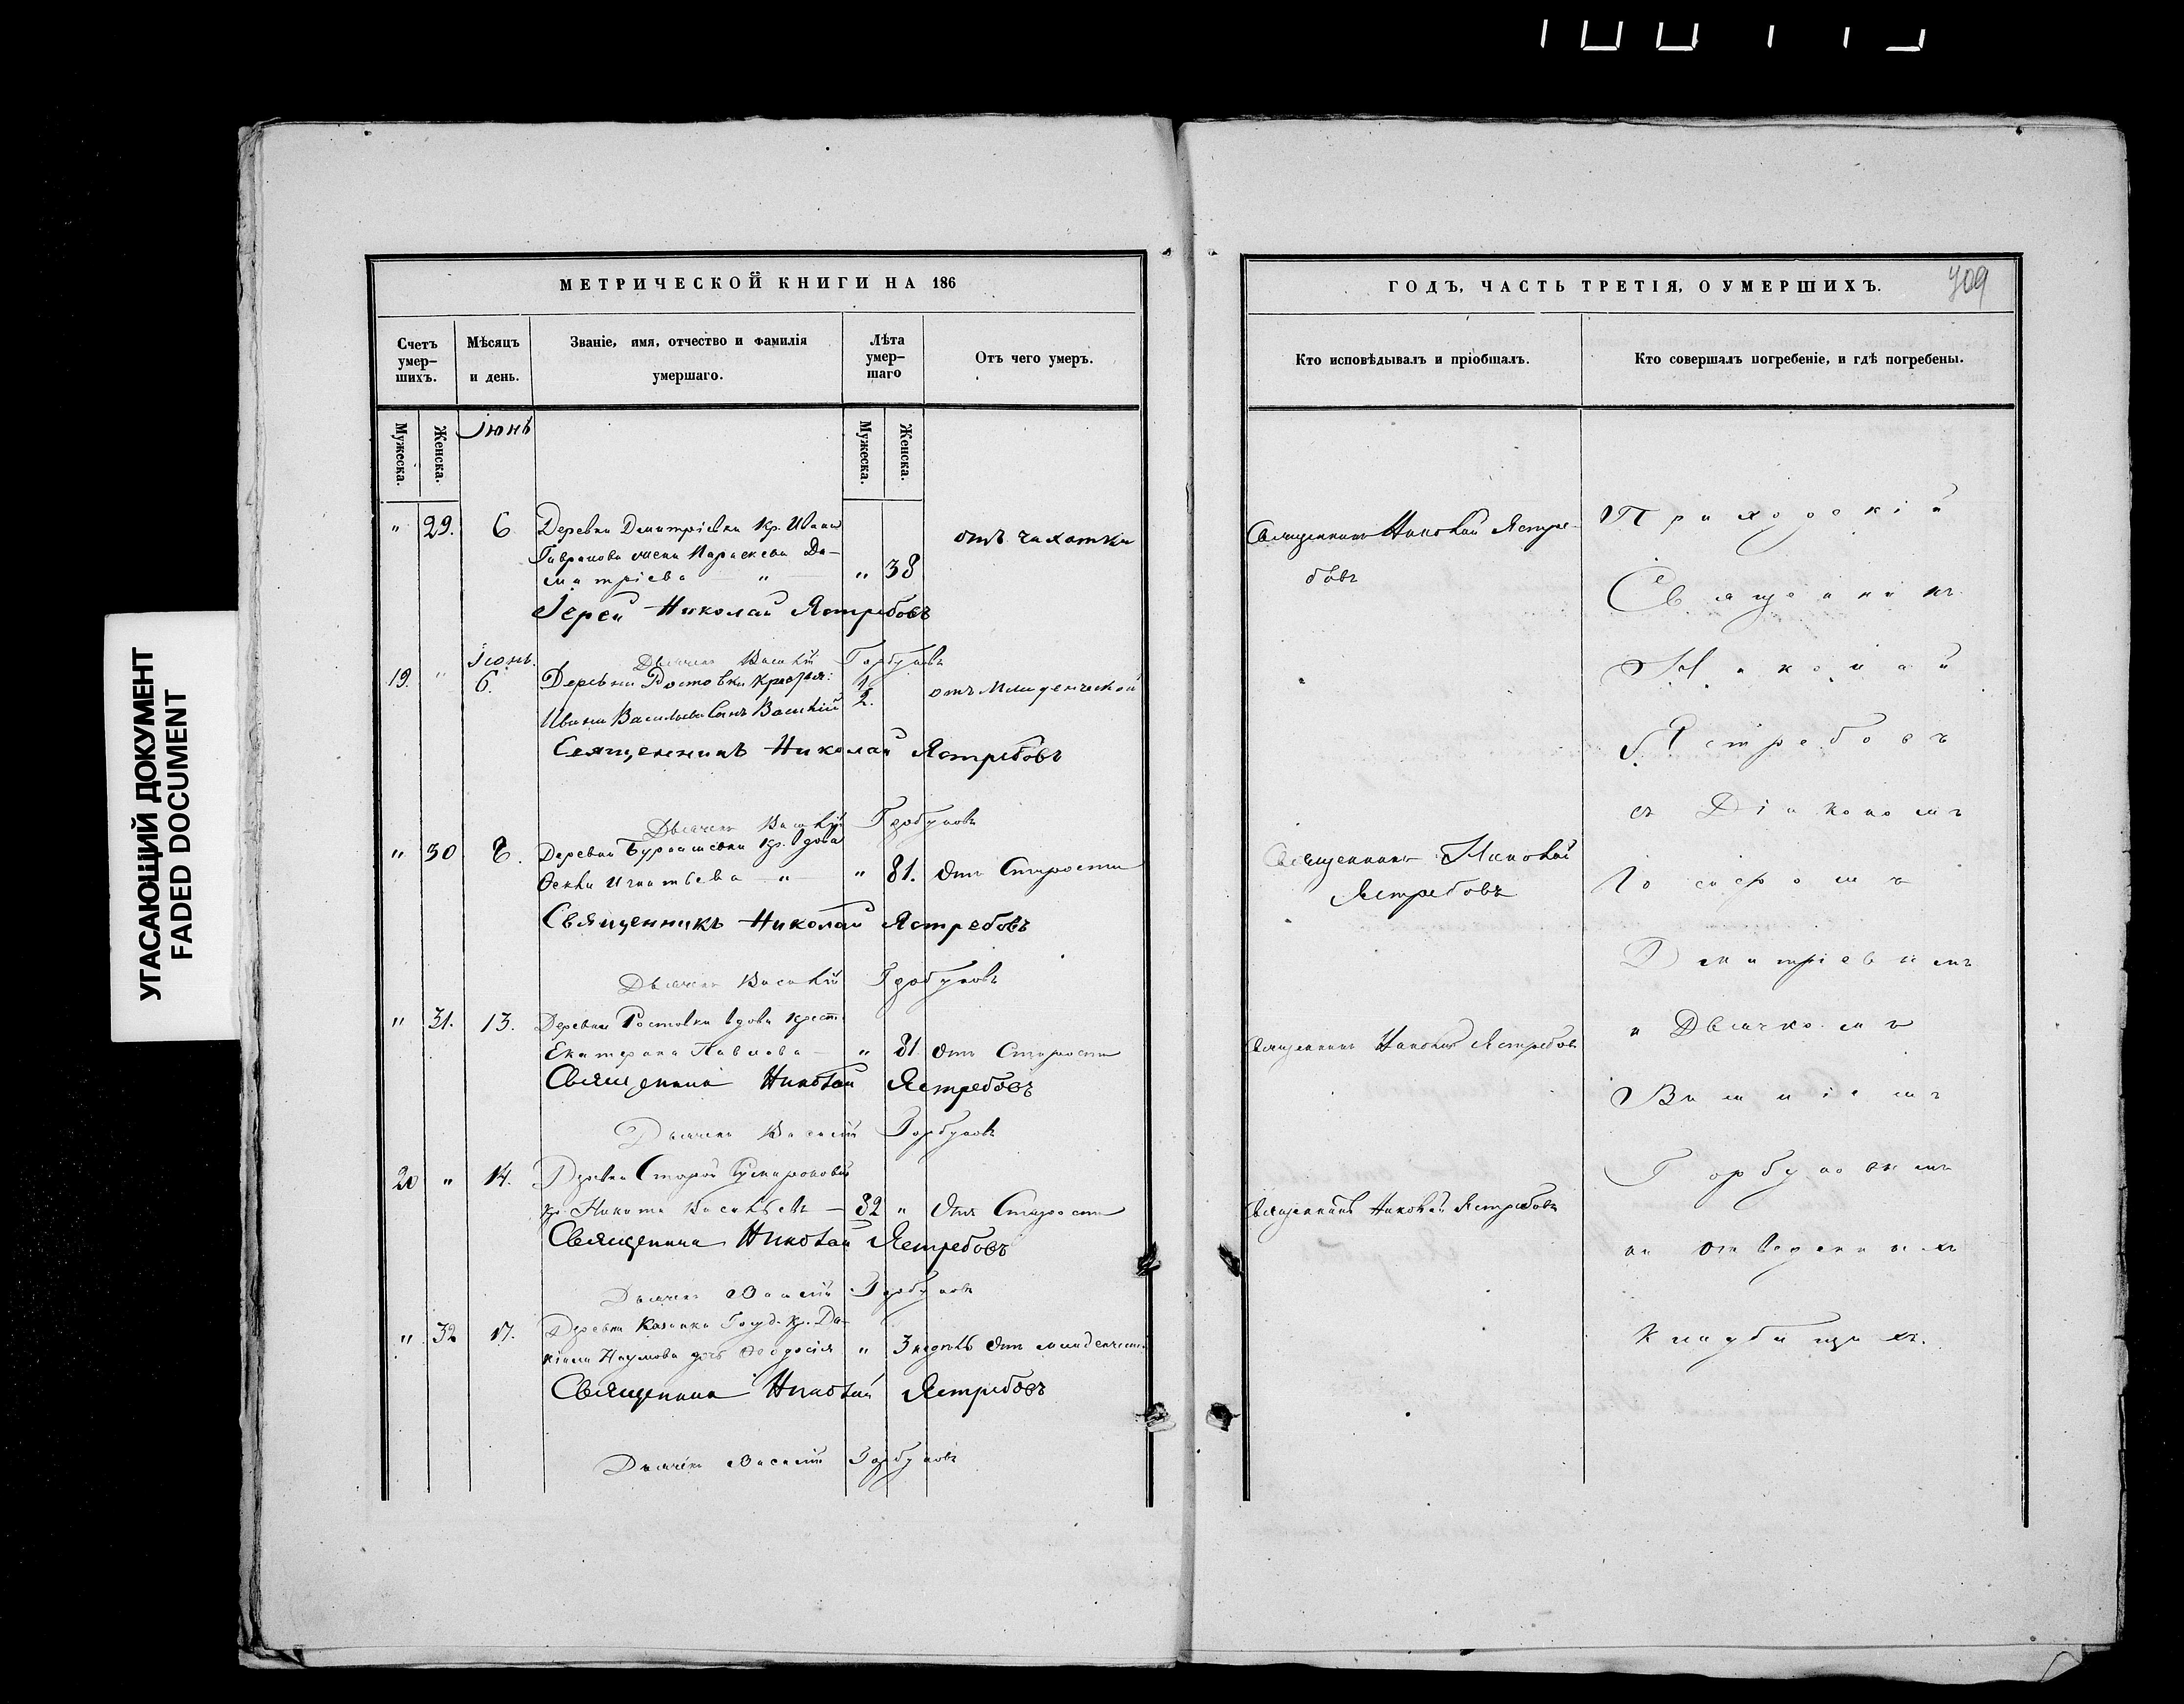 УГАСАЮЩИЙ ДОКУМЕНТ
FADED DOCUMENT
МЕТРИЧЕСКОЙ КНИГИ НА 186
Счетъ умер-шихъ.
Мѣсяцъ и день.
Званіе, имя, отчество и фамилія умершаго.
Лѣта умер-шаго
Отъ чего умеръ.
Мужеска.
Женска.
Іюнь
Мужеска.
Женска.
" 29. 6 Деревни Дмитріевки кр. Ивана
Гаврилова жена Параскева Ди-
митріева " " 38 отъ чахотки
Іерей Николай Ястребовъ
Дьячекъ Василій Горбуновъ
19. " Іюнь 6. Деревни Ростовки крестьян:
Ивана Васильева сынъ Василій 1/2. отъ Младенческой
Священникъ Николай Ястребовъ
Дьячекъ Василій Горбуновъ
" 30 8. Деревни кр. вдова
Игнатьева " " 81. отъ Старости
Священникъ Николай Ястребовъ
Дьячекъ Василій Горбуновъ
" 31. 13. Деревни Ростовки вдова крест.
Екатерина Павлова " 81 отъ Старости
Священникъ Николай Ястребовъ
Дьячекъ Василій Горбуновъ
20 " 14. Деревни Старой
кр. Никита Васильевъ 82 " отъ Старости
Священникъ Николай Ястребовъ
Дьячекъ Василій Горбуновъ
" 32 17. Деревни Казанки Госуд. кр. Да-
Наумова дочь Феодосія " 3 недѣль отъ младенческ.
Священникъ Николай Ястребовъ
Дьячекъ Василій Горбуновъ
ГОДЪ, ЧАСТЬ ТРЕТІЯ, О УМЕРШИХЪ.
409
Кто исповѣдывалъ и пріобщалъ.
Кто совершалъ погребеніе, и гдѣ погребены.
Священникъ Николай Ястре-
бовъ
Священникъ Николай
Ястребовъ
Священникъ Николай Ястребовъ
Священникъ Николай Ястребовъ
Приходскій
Священникъ
Николай
Ястребовъ
съ Діакономъ
Іосифомъ
Дмитріевымъ
и Дьячкомъ
Василіемъ
Горбуновымъ
на отведенныхъ
кладбищахъ.